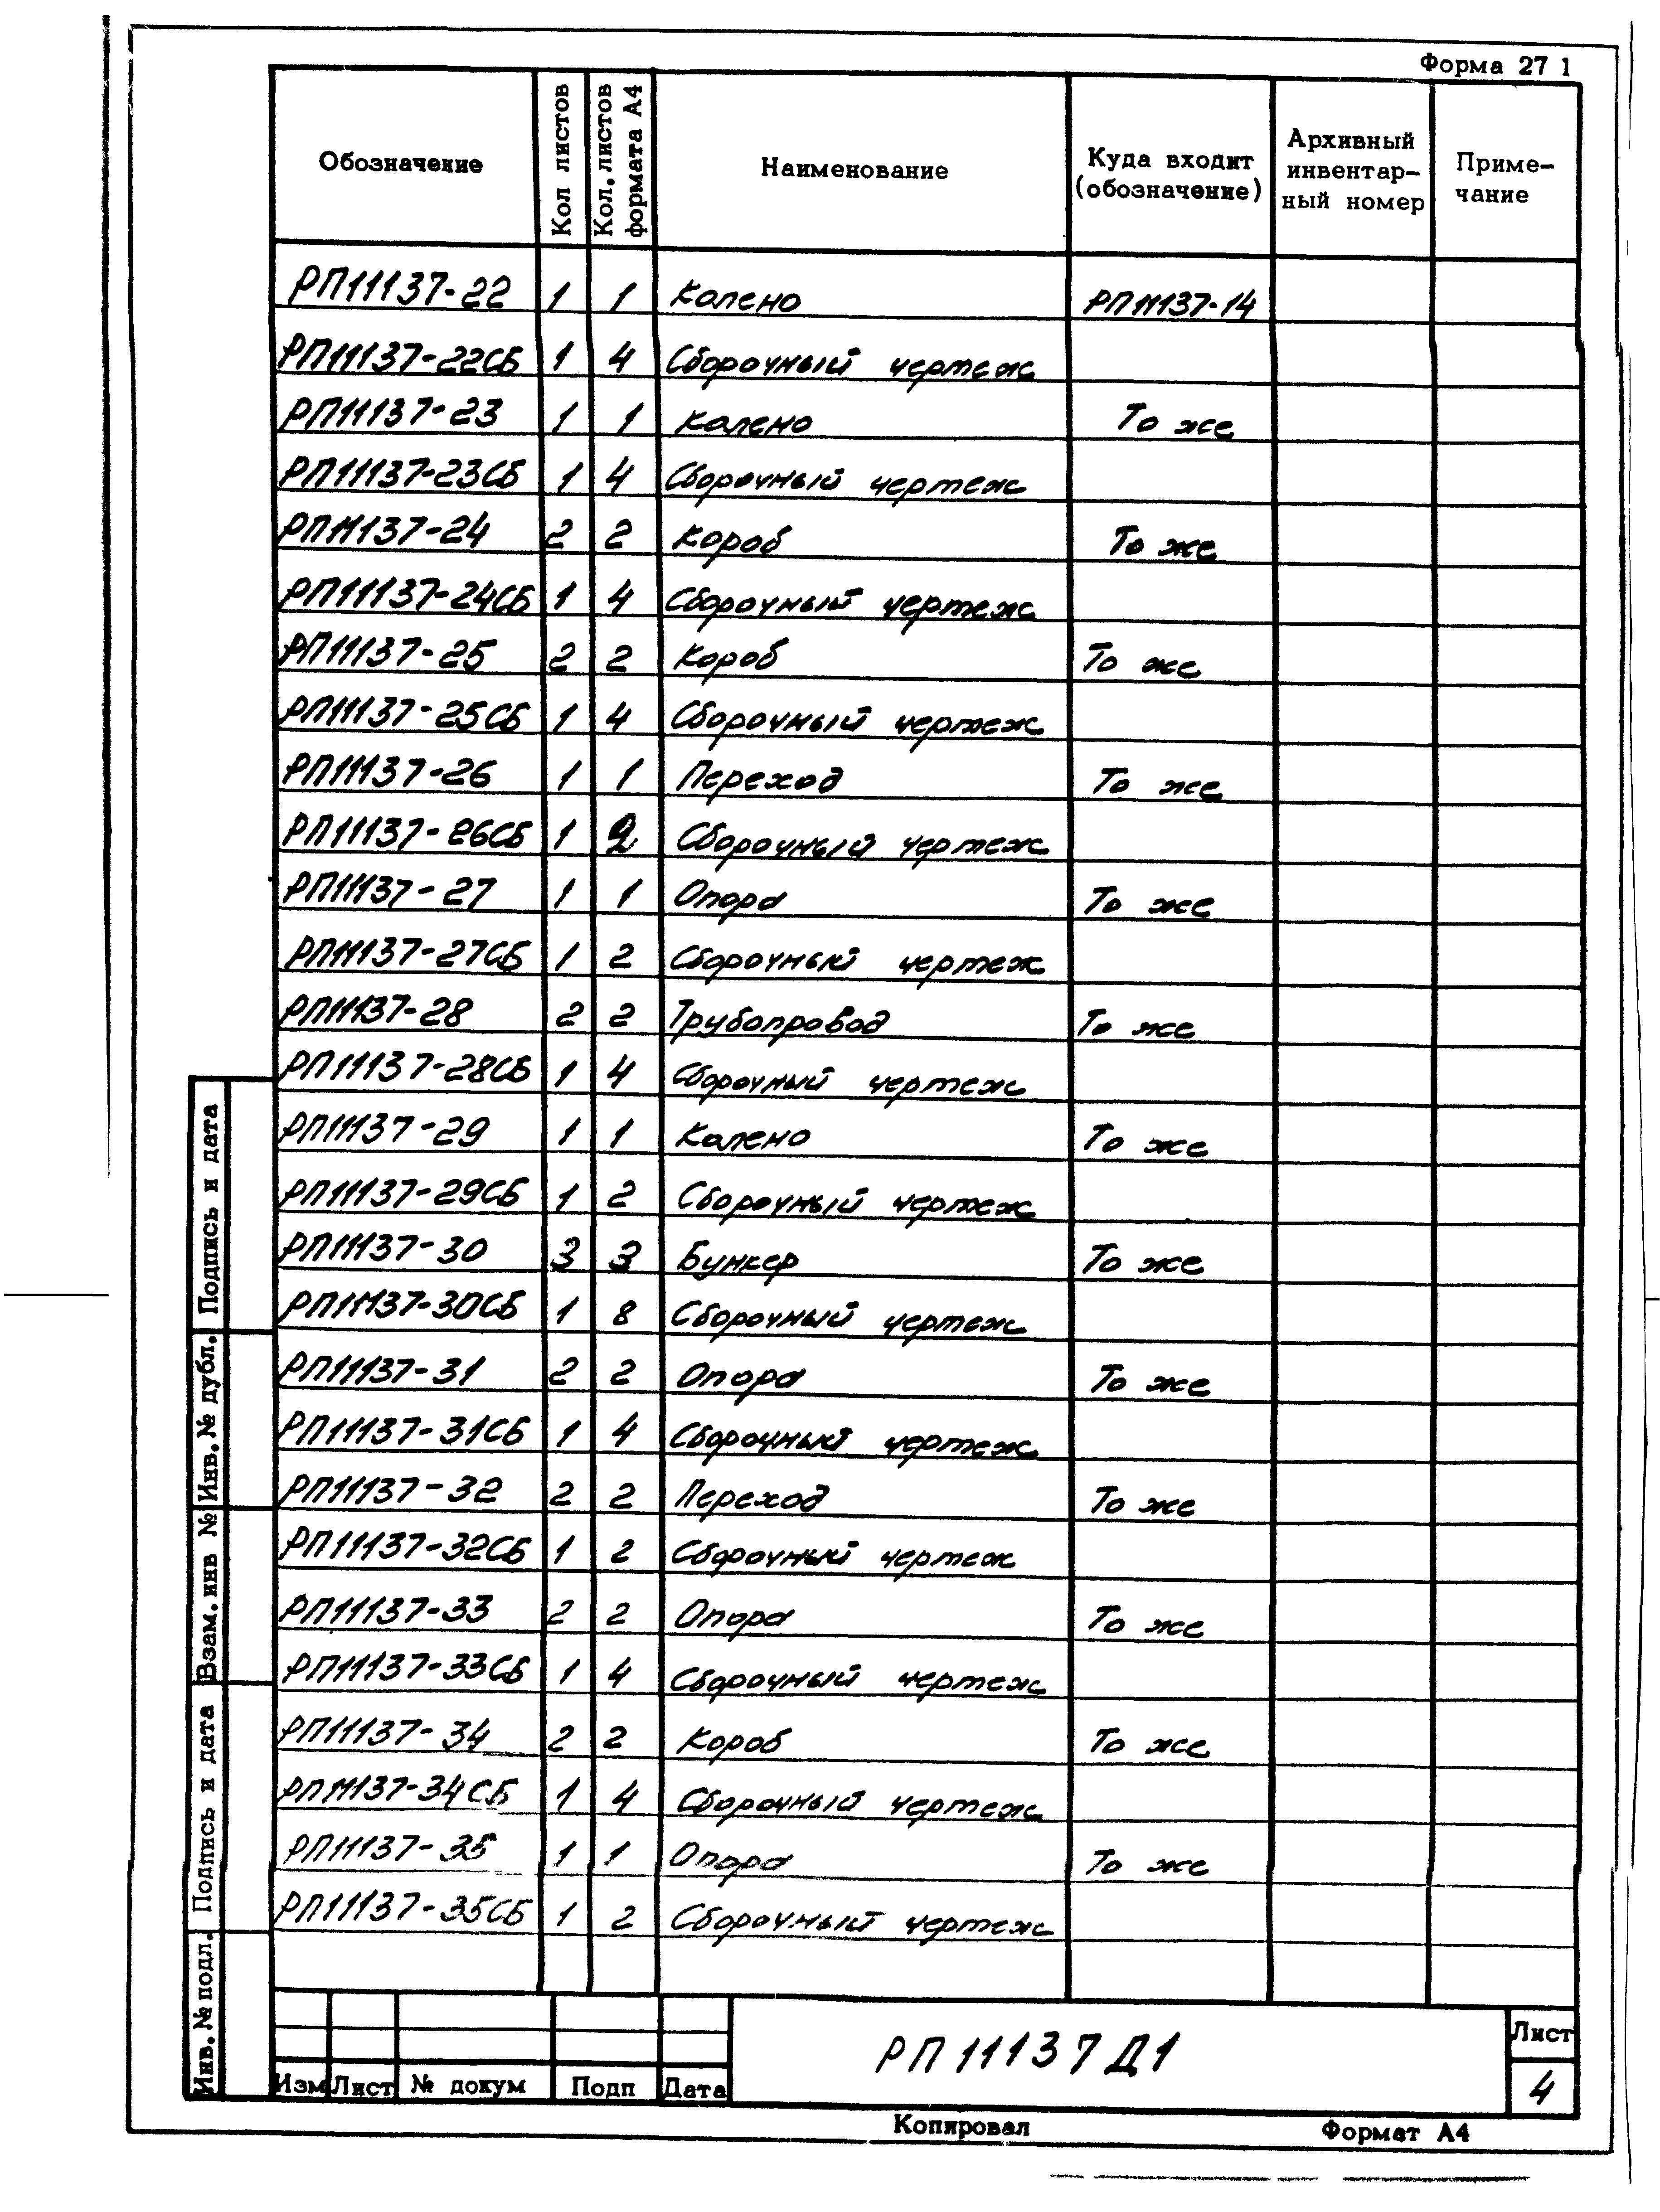 Форма 27 1
Обозначение Кол листов Кол. листов формата А4 Наименование Куда входит (обозначение) Архивный инвентар- ный номер Приме- чание
РП11137-22 1 1 Колено РП11137-14
РП11137-22СБ 1 4 Сборочный чертеж
РП11137-23 1 1 Колено То же
РП11137-23СБ 1 4 Сборочный чертеж
РП11137-24 2 2 Короб То же
РП11137-24СБ 1 4 Сборочный чертеж
РП11137-25 2 2 Короб То же
РП11137-25СБ 1 4 Сборочный чертеж
РП11137-26 1 1 Переход То же
РП11137-26СБ 1 2 Сборочный чертеж
РП11137-27 1 1 Опора То же
РП11137-27СБ 1 2 Сборочный чертеж
РП11137-28 2 2 Трубопровод То же
РП11137-28СБ 1 4 Сборочный чертеж
РП11137-29 1 1 Колено То же
РП11137-29СБ 1 2 Сборочный чертеж
РП11137-30 3 3 Бункер То же
РП11137-30СБ 1 8 Сборочный чертеж
РП11137-31 2 2 Опора То же
РП11137-31СБ 1 4 Сборочный чертеж
РП11137-32 2 2 Переход То же
РП11137-32СБ 1 2 Сборочный чертеж
РП11137-33 2 2 Опора То же
РП11137-33СБ 1 4 Сборочный чертеж
РП11137-34 2 2 Короб То же
РП11137-34СБ 1 4 Сборочный чертеж
РП11137-35 1 1 Опора То же
РП11137-35СБ 1 2 Сборочный чертеж
Подпись и дата
Инв. № дубл.
Взам. инв №
Подпись и дата
Инв. № подл.
Изм Лист № докум Подп Дата
РП11137Д1
Лист
4
Копировал Формат А4